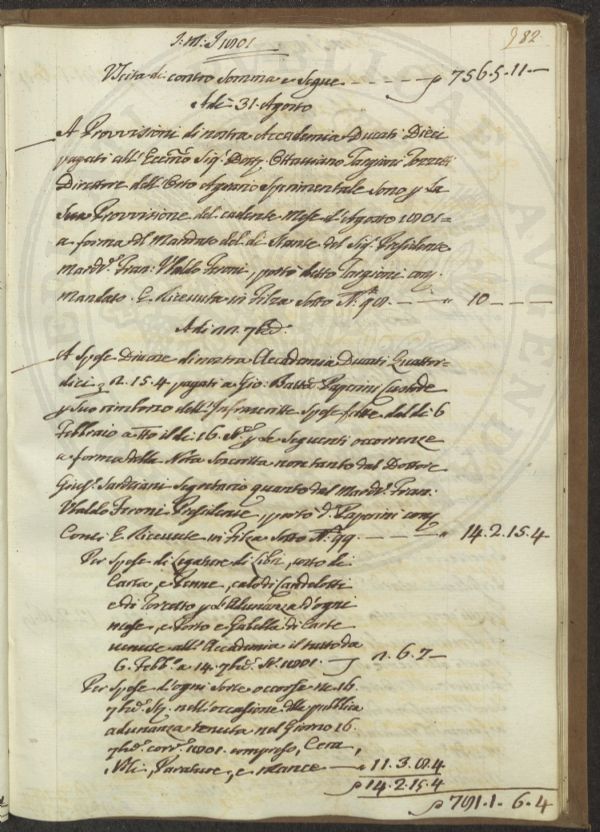 J: M: J 1801
82
Uscita di contro Somma e Segue ƿ 756.5.11.—
Adi 31. Agosto
A Provvisioni di nostra Accademia Ducati Dieci
pagati all' Eccmo Sig: Dott: Ottaviano Targioni Tozzetti
Direttore dell' Orto Agrario Sperimentale sono p la
Sua Provvisione del cadente Mese d'Agosto 1801 =
a forma d'l Mandato del dì Stante del Sig: Presidente
March: Fran: Ubaldo Feroni, portò detto Targioni come p
Mandato. E Ricevuta in Filza Sotto N° 98. — — " 10 — — —
A di 22. 7bre
A Spese Diverse di nostra Accademia Ducati Quattor-
dici 2.15.4 pagati a Gio: Batta: Paperini Custode
p Suo rimborso dell' Infrascritte Spese fatte dal dì 6
Febbraio a tto il dì 16. St. p le Seguenti occorrenze
a forma della Nota Soscritta non tanto dal Dottore
Gius: Sarchiani Segretario quanto dal March: Fran:
Ubaldo Feroni Presidente, portò d. Paperini come p
Conto E Ricevuta in Filza Sotto N° 99. — — — " 14.2.15.4
Per Spese di Legature di Libri, costo di
Carta, e Penne, calo di Candelotti
e di Torcetto p l'Adunanza d'ogni
mese, e Porto e Gabella di Carte
venute all' Accademia il tutto da
6. Febb: a 14. 7bre St. 1801. — ƿ 2.6.7 —
Per Spese d'ogni Sorte occorse ne 16
7bre St. nell' occasione della pubblica
adunanza tenuta nel Giorno 16.
7bre corr: 1801. compreso, Cera,
Noli, Parature, e mance — " 11.3.8.4
ƿ 14.2.15.4
ƿ 781.1.6.4